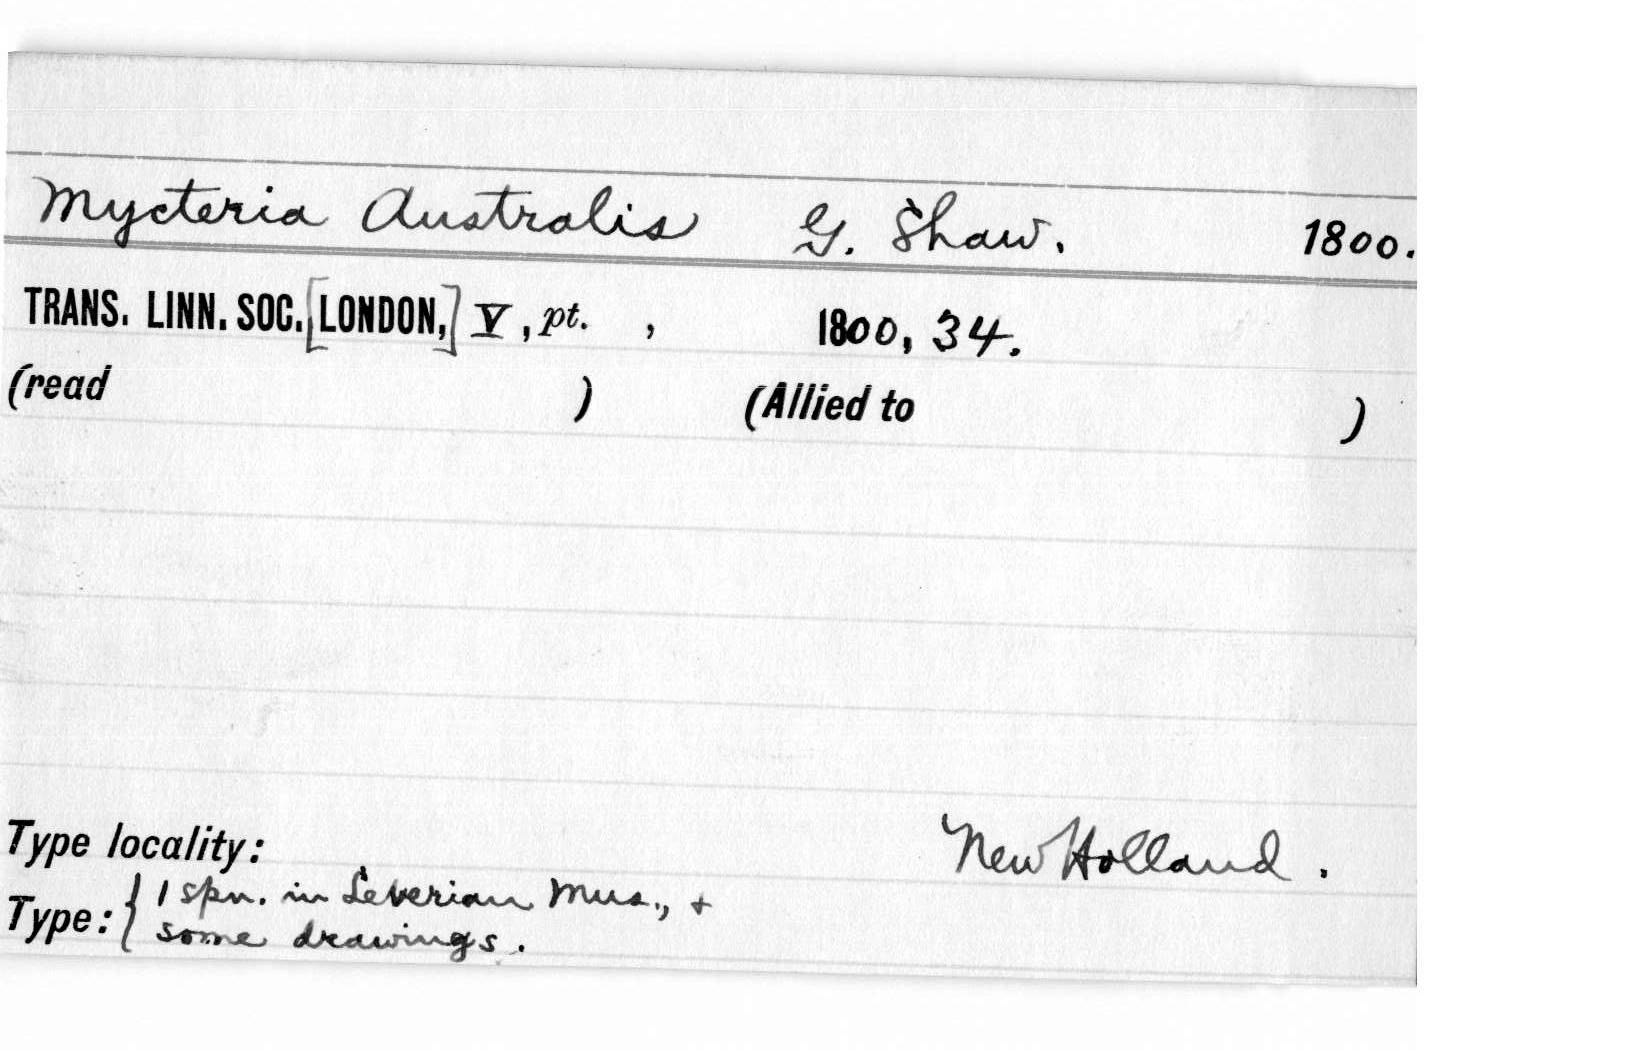 Mycteria Australis G. Shaw. 1800.
TRANS. LINN. SOC. [LONDON,] V, pt. , 1800, 34.
(read ) (Allied to )
Type locality: New Holland.
Type: { 1 spn. in Leverian Mus., +
some drawings.